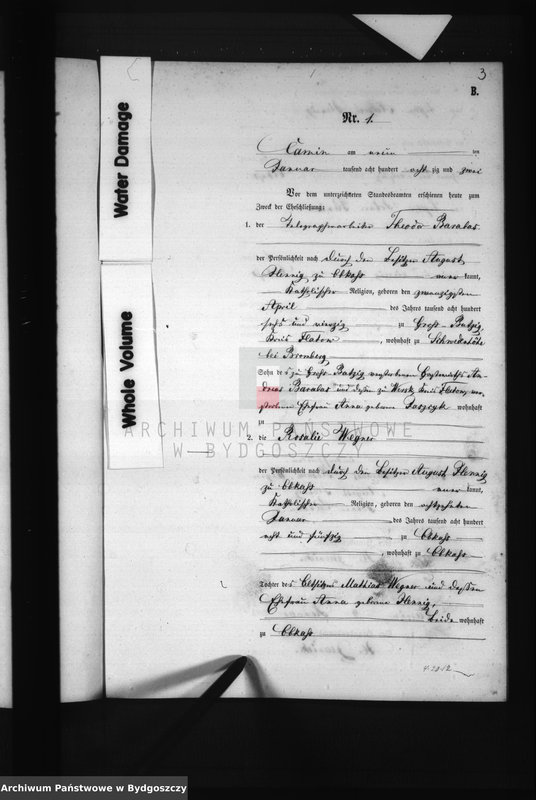 3
B.
Nr. 1.
Camin am neun ten
Januar tausend acht hundert acht zig und zwei
Vor dem unterzeichneten Standesbeamten erschienen heute zum
Zweck der Eheschließung:
1. der Telegraphenarbeiter Theodor Barabas
der Persönlichkeit nach durch den Besitzer August
Hennig zu Obkass kannt,
Katholischer Religion, geboren den zwanzigsten
April des Jahres tausend acht hundert
sechs und vierzig zu Gross-Butzig
Kreis Flatow, wohnhaft zu
bei Bromberg
Sohn des zu Gross-Butzig verstorbenen
Barabas und dessen zu Kreis Flatow, ver-
storbenen Ehefrau Anna geborene wohnhaft
zu
2. die Rosalie Wegner
der Persönlichkeit nach durch den Besitzer August Hennig
zu Obkass kannt,
Katholischer Religion, geboren den achtzehnten
Januar des Jahres tausend acht hundert
acht und fünfzig zu Obkass
, wohnhaft zu Obkass
Tochter des Altsitzers Mathias Wegner und dessen
Ehefrau Anna geborene Hennig,
beide wohnhaft
zu Obkass
Water Damage
Whole Volume
ARCHIWUM PAŃSTWOWE
W BYDGOSZCZY
Archiwum Państwowe w Bydgoszczy